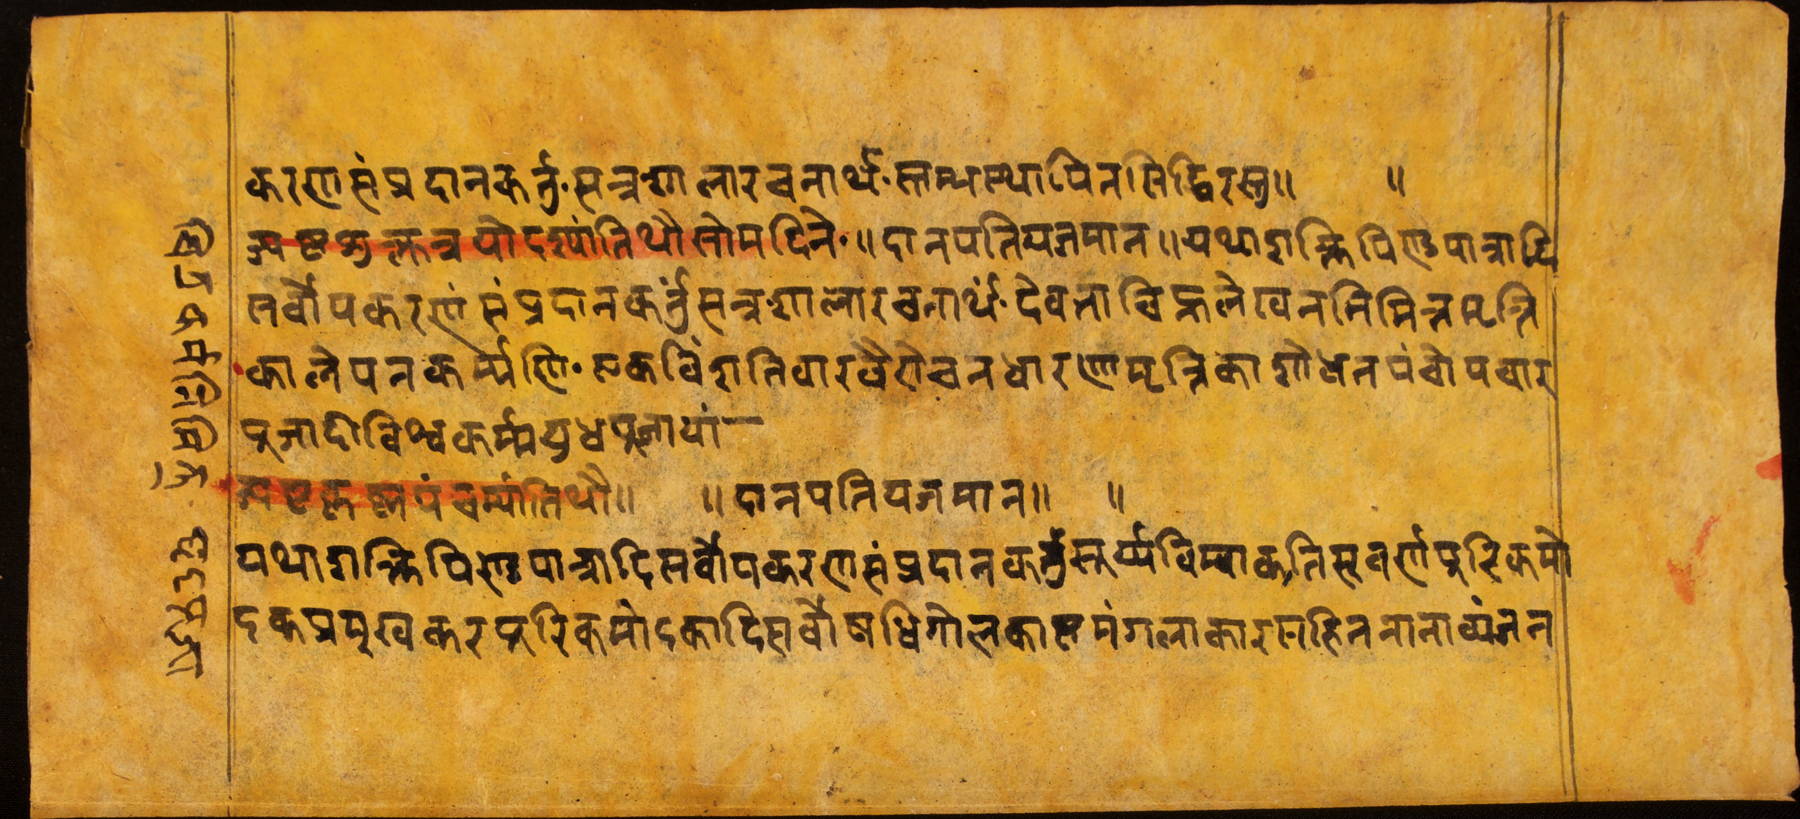 करणसंप्रदानकर्त्तुं॰सत्रशालारचनार्थं॰स्तम्भस्थापिनसिद्धिरस्तु॥ ॥
ज्येष्टशुक्लत्रयोदश्यांतिथौसोमदिने॰॥दानपतियजमान॥यथाशक्तिपिण्डपात्रादि
सर्वोपकरणंसंप्रदानकर्त्तुंसत्रशालारचनार्थं॰देवताचित्रलेखननिमित्तमृत्ति
कालेपनकर्म्मणि॰एकविंशतिवारवैरोचनधारणीमृत्तिकाशोधनपंचोपचार
पूजादीविश्वकर्म्मायुधपूजायां—
ज्येष्टकृष्णपंचम्यांतिथौ॥ ॥दानपतियजमान॥ ॥
यथाशक्तिपिण्डपात्रादिसर्वोपकरणसंप्रदानकर्त्तुंसूर्य्यविम्बाकृतिसुवर्णपुरिकमो
दकप्रमुखकरपुरिकमोदकादिसर्वौषधिगोलकाष्टमंगलाकारसहितनानाव्यंजन